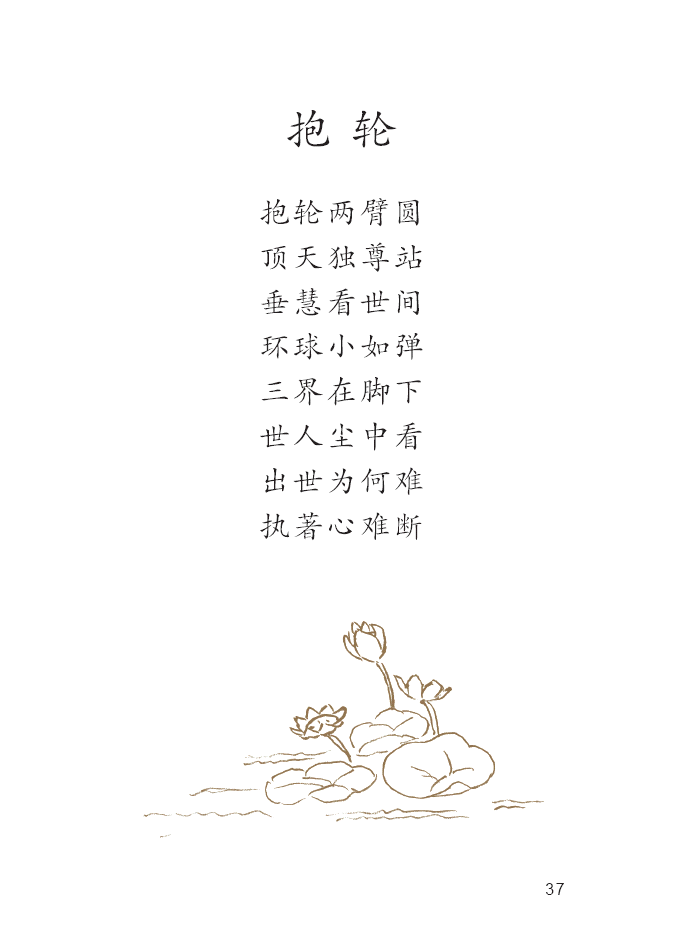 抱轮
抱轮两臂圆
顶天独尊站
垂慧看世间
环球小如弹
三界在脚下
世人尘中看
出世为何难
执著心难断
37